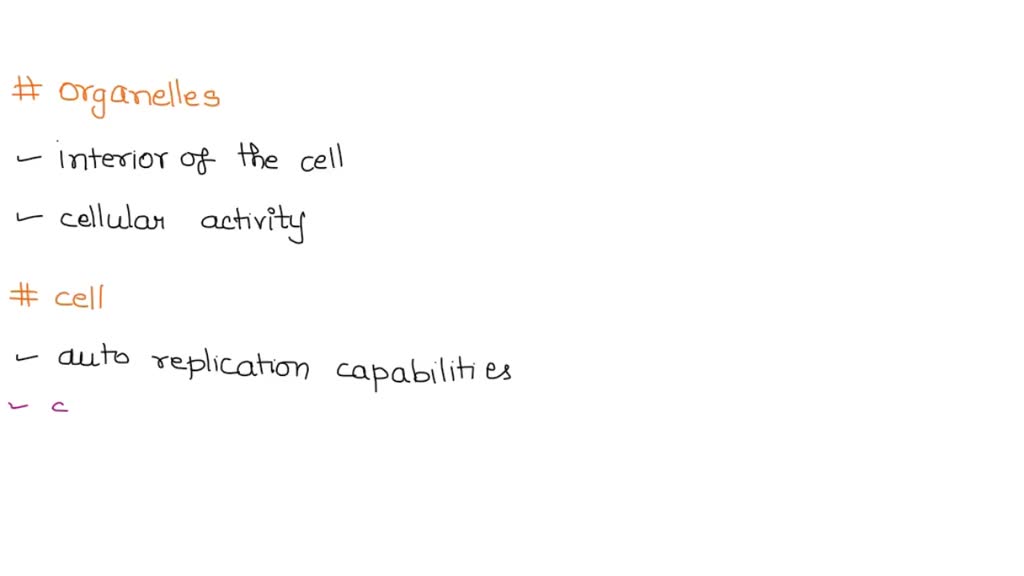 # organelles
- interior of the cell
- cellular activity
# cell
- auto replication capabilities
- c